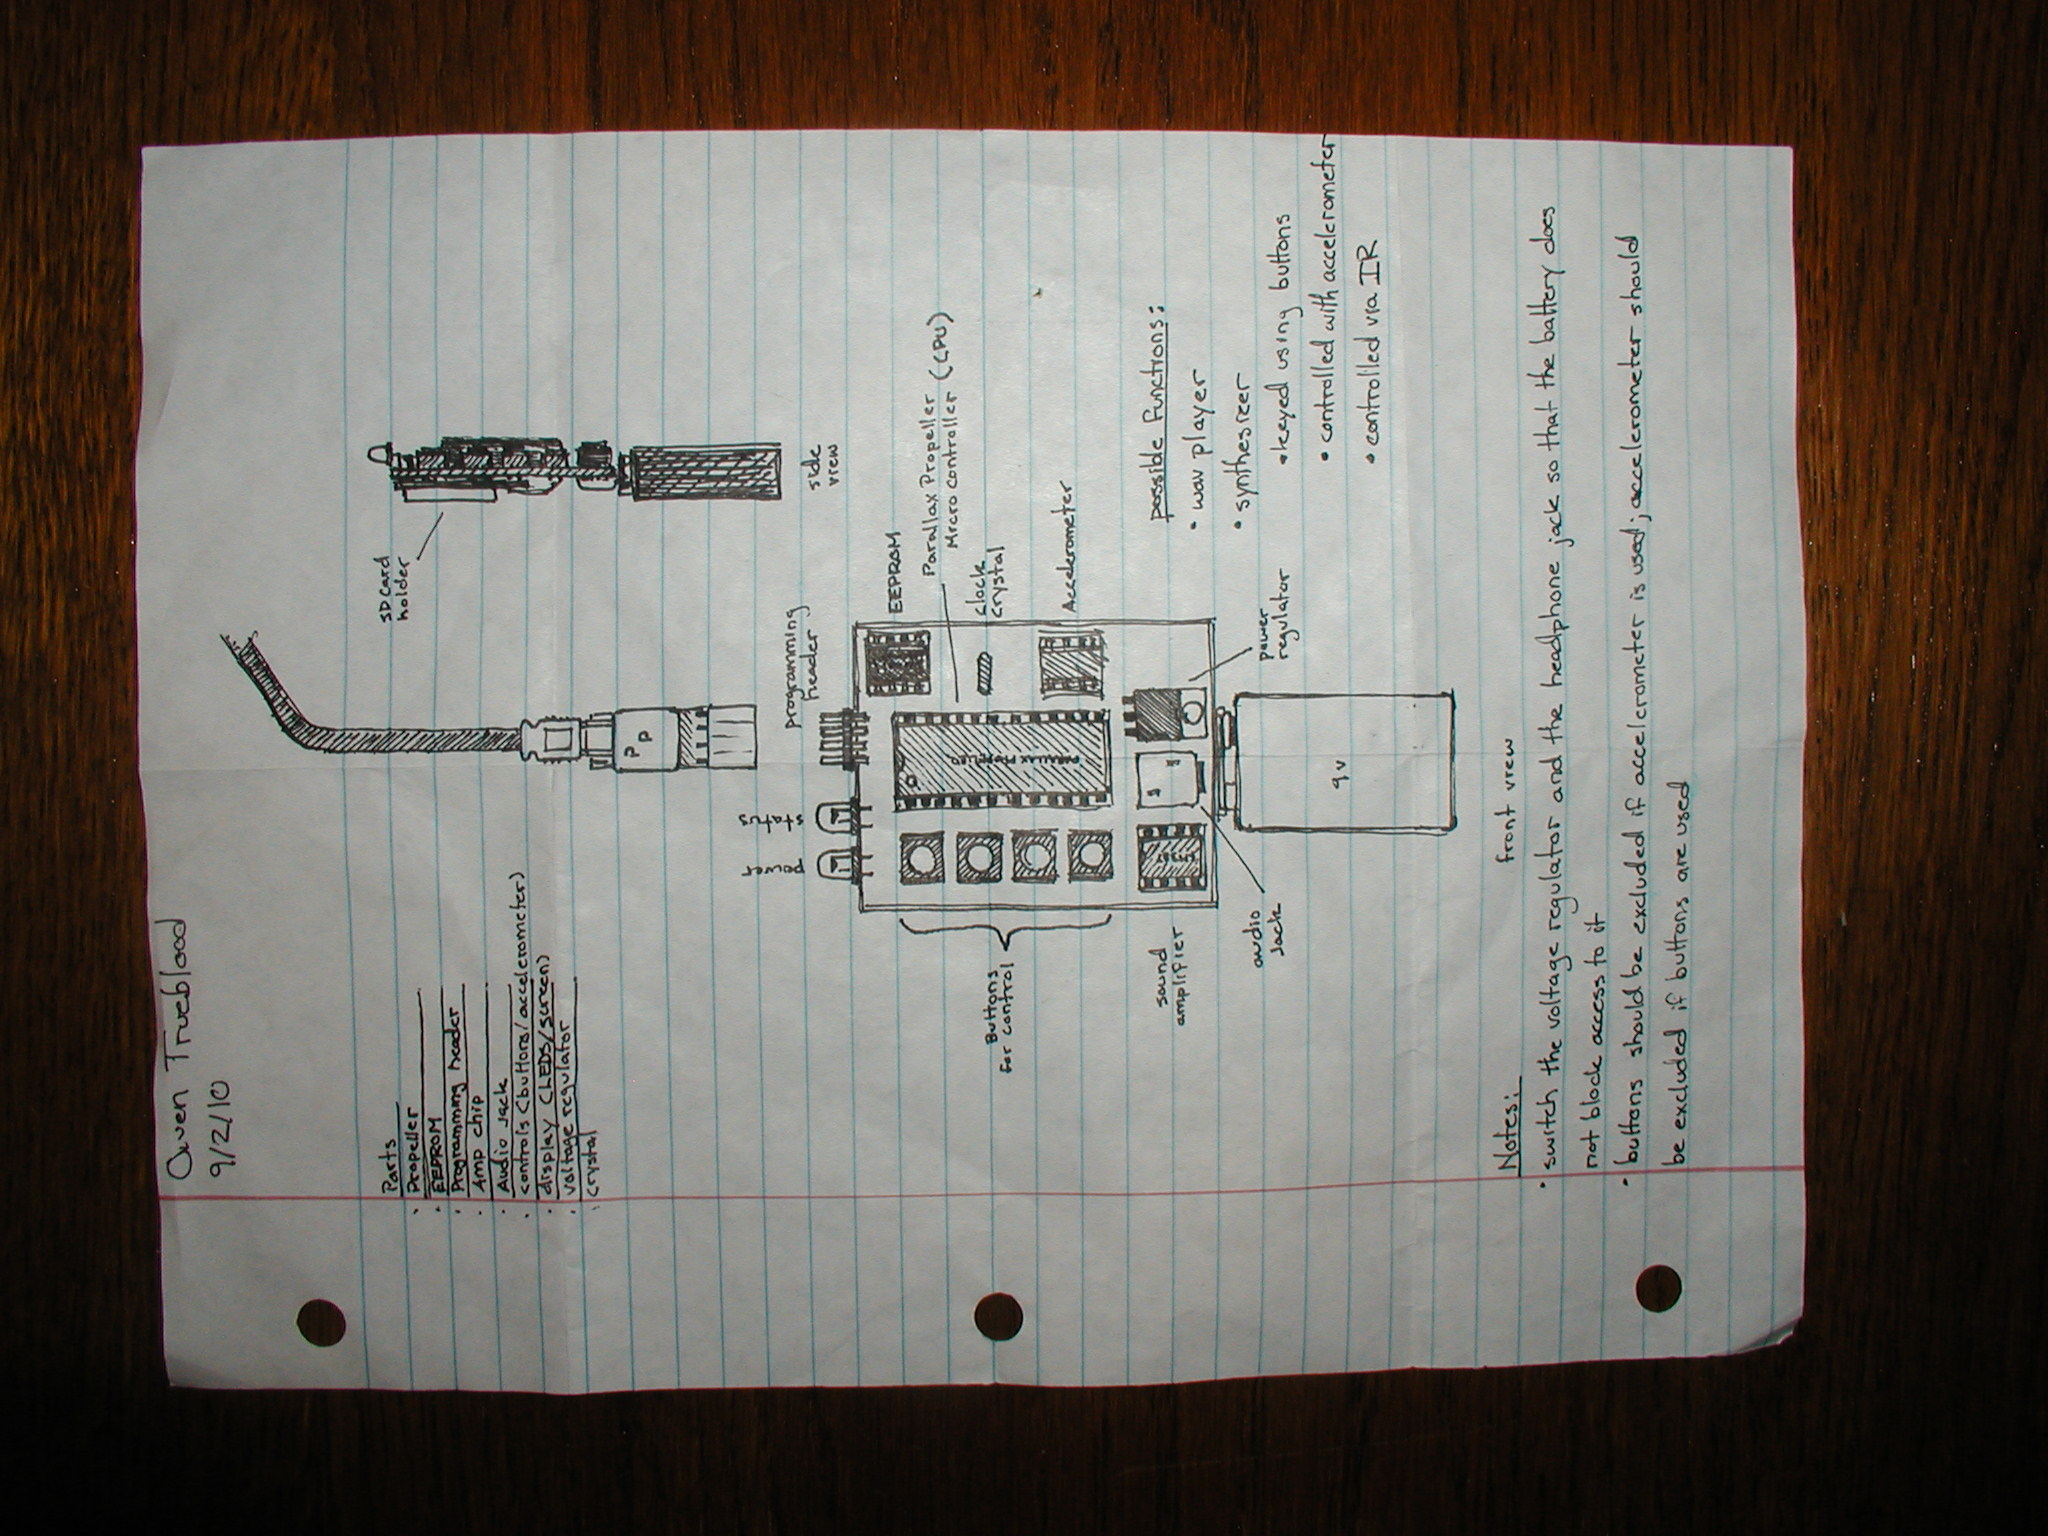 Owen Trueblood
9/2/10
Parts
· Propeller
· EEPROM
· Programming header
· Amp chip
· Audio Jack
· controls (buttons/accelerometer)
· display (LEDS/screen)
· voltage regulator
· crystal
SD Card
holder
P
P
side
view
power
status
programming
header
EEPROM
Parallax Propeller
Micro controller (CPU)
PARALLAX PROPELLER
Buttons
for control
clock
crystal
Accelerometer
sound
amplifier
LM387
audio
jack
power
regulator
9v
possible functions:
• wav player
• synthesizer
• keyed using buttons
• controlled with accelerometer
• controlled via IR
front view
Notes:
· switch the voltage regulator and the headphone jack so that the battery does
not block access to it
· buttons should be excluded if accelerometer is used; accelerometer should
be excluded if buttons are used